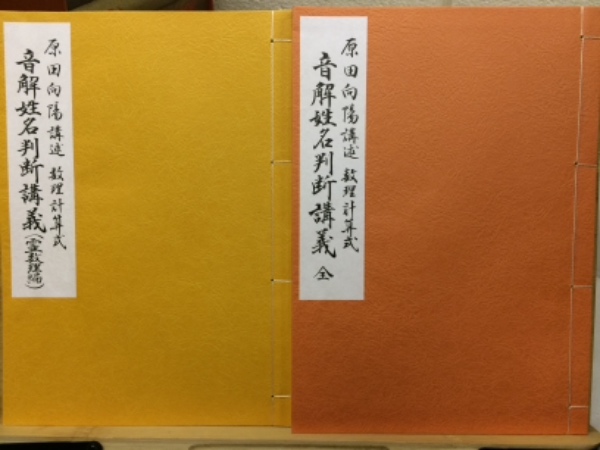 原田向陽講述 数理計算式
音解姓名判断講義 全
原田向陽講述 数理計算式
音解姓名判断講義(霊数理編)